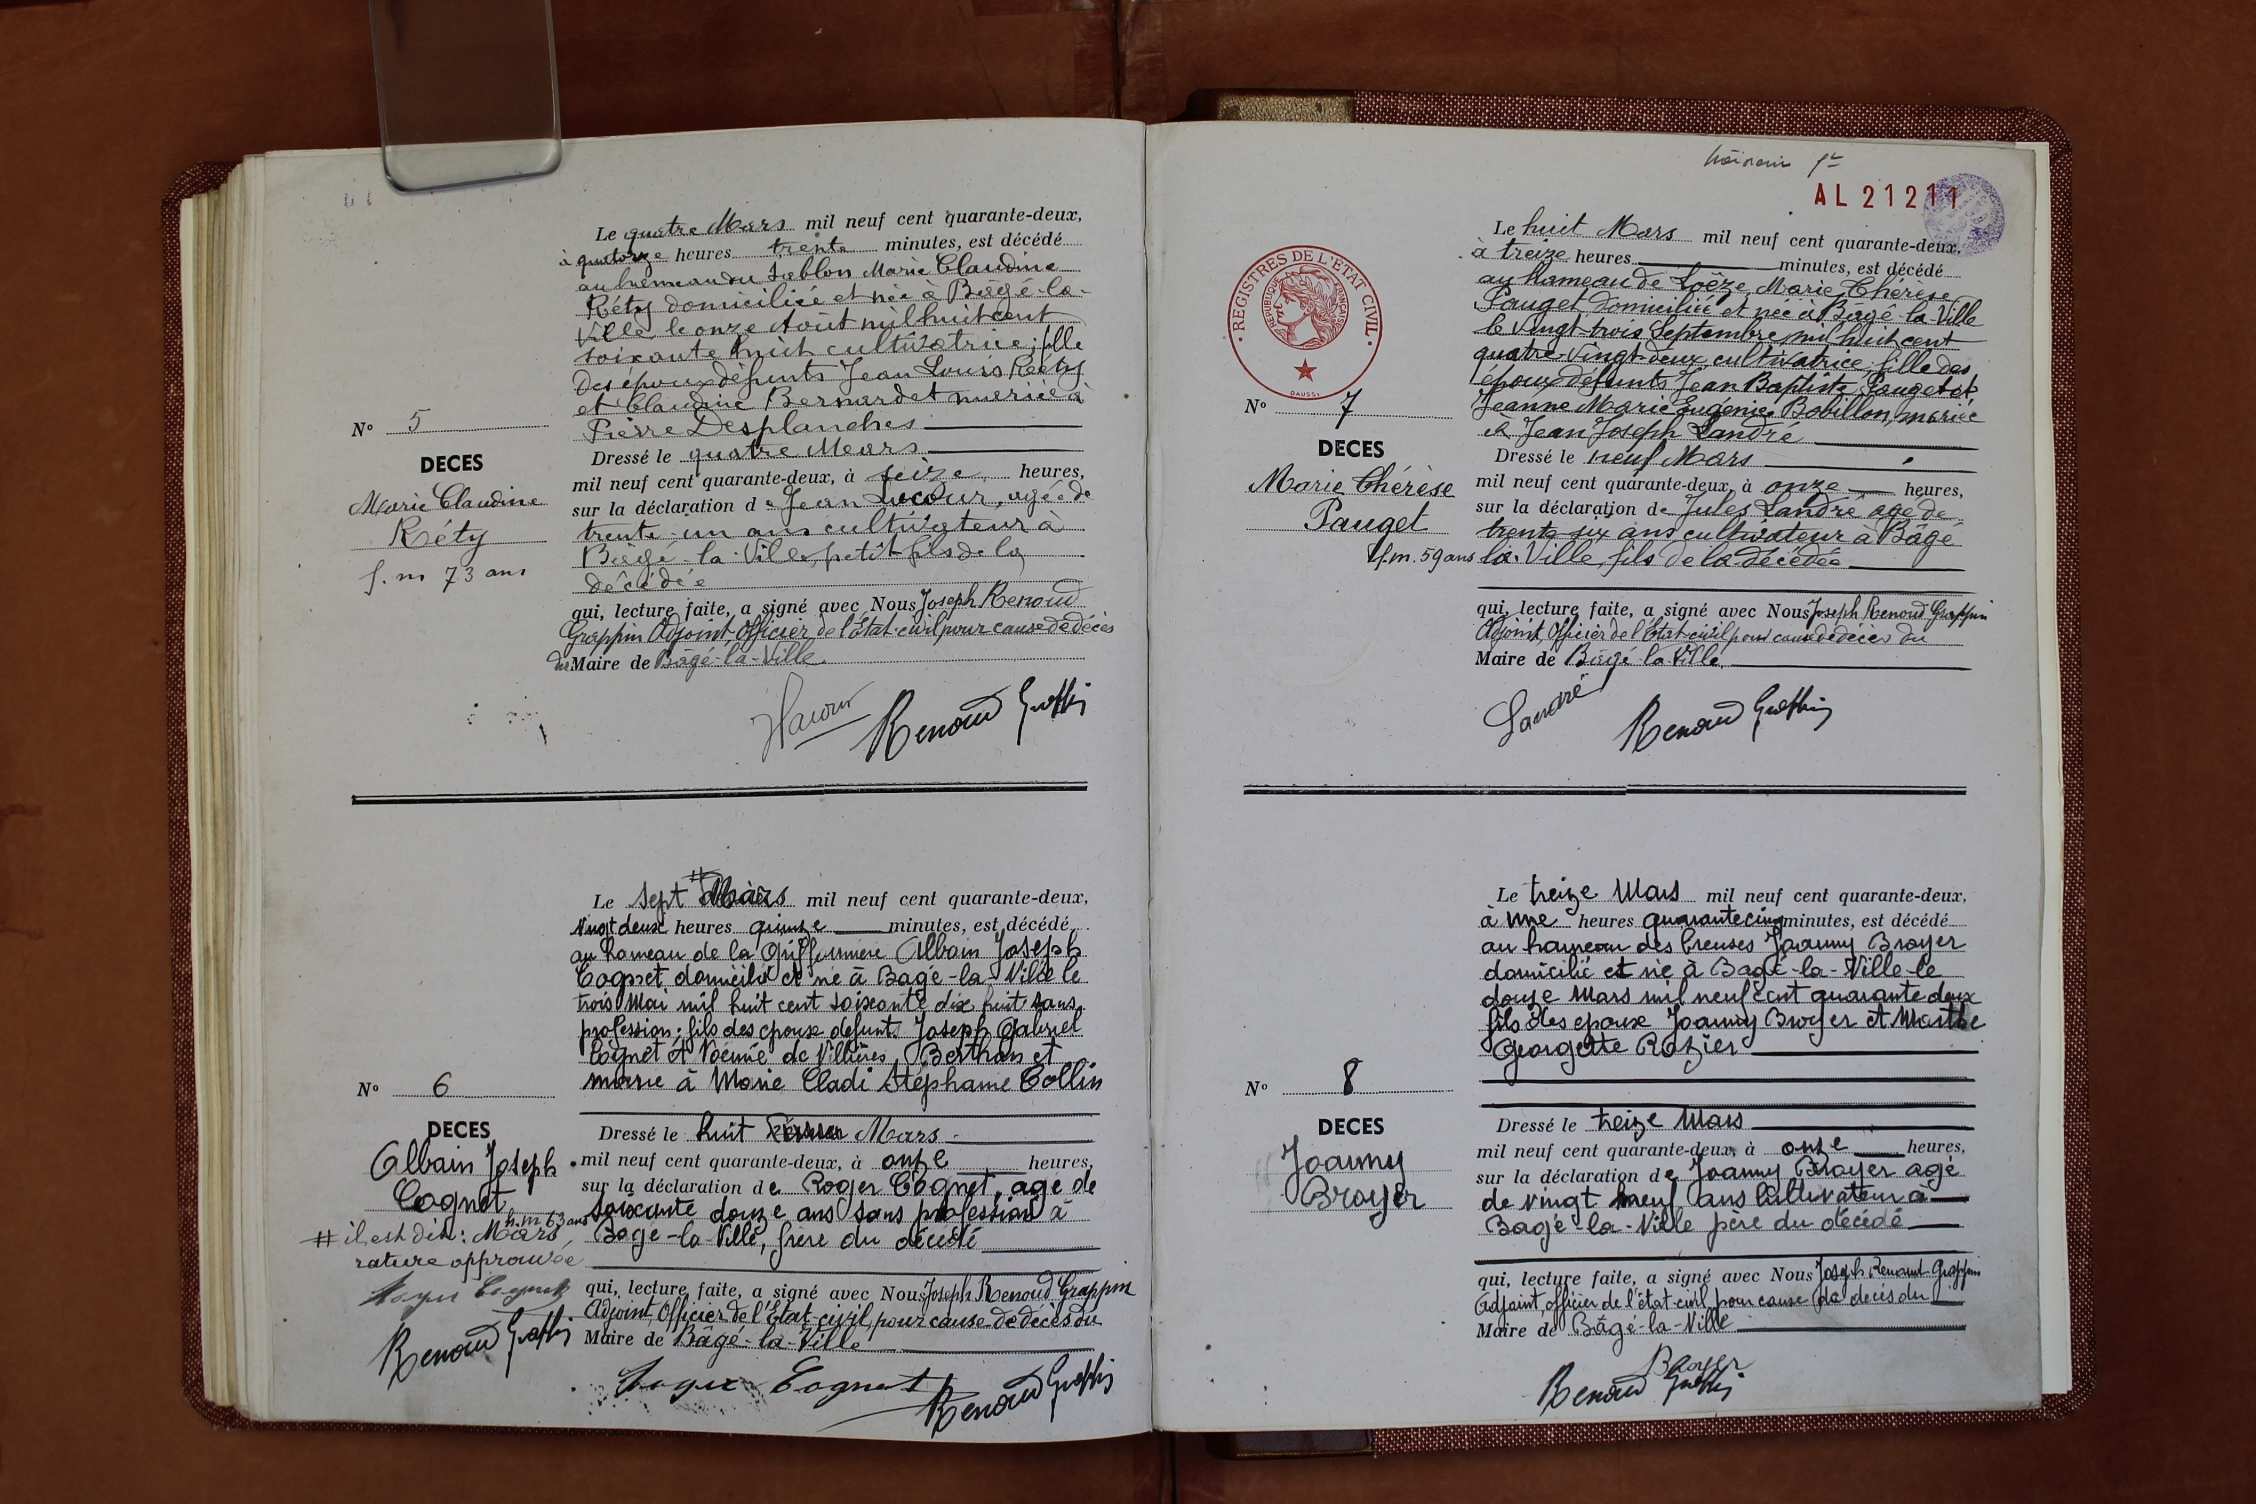 Le quatre Mars mil neuf cent quarante-deux,
à quatorze heures trente minutes, est décédé
au hameau du Sablon Marie Claudine
Réty domiciliée et née à Bâgé-la-
Ville le onze Août mil huit cent
soixante huit cultivatrice; fille
des époux défunts Jean Louis Réty
et Claudine Bernardet mariée à
Pierre Desplanches
Nº 5
DECES
Marie Claudine
Réty
f. m 73 ans
Dressé le quatre Mars
mil neuf cent quarante-deux, à seize heures,
sur la déclaration de Jean Lacour, agé de
trente-un ans cultivateur à
Bâgé-la-Ville, petit fils de la
décédée
qui, lecture faite, a signé avec Nous Joseph Renoud
Grappin Adjoint, Officier de l'Etat-civil pour cause de décès
du Maire de Bâgé-la-Ville
Renoud Grappin
Le sept # Mars mil neuf cent quarante-deux,
vingt deux heures quinze minutes, est décédé
au hameau de la Albain Joseph
Cognet domicilié et né à Bagé-la-Ville le
trois Mai mil huit cent soixante dix huit sans
profession; fils des époux défunts Joseph Gabriel
Cognet et Noémie de Villiers Berthan et
marié à Marie Cladi Stéphanie Collin
Nº 6
DECES
Albain Joseph
Cognet
h. m 63 ans
# il est dit: Mars
rature approuvée
Roger Cognet
Renoud Grappin
Dressé le huit Mars
mil neuf cent quarante-deux, à onze heures,
sur la déclaration de Roger Cognet, agé de
soixante douze ans sans profession à
Bagé-la-Ville, frère du décédé
qui, lecture faite, a signé avec Nous Joseph Renoud Grappin
Adjoint, Officier de l'Etat-civil, pour cause de décès du
Maire de Bâgé-la-Ville
Roger Cognet
Renoud Grappin
AL 21211
REGISTRES DE L'ETAT CIVIL
REPUBLIQUE FRANÇAISE
DAUSSY
Le huit Mars mil neuf cent quarante-deux,
à treize heures minutes, est décédé
au hameau de Loëze, Marie Thérèse
Pauget domiciliée et née à Bâgé-la-Ville
le vingt-trois Septembre mil huit cent
quatre-vingt-deux cultivatrice; fille des
époux défunts Jean Baptiste Pauget et
Jeanne Marie Eugénie Bobillon, mariée
à Jean Joseph Landré
Nº 7
DECES
Marie Thérèse
Pauget
f. m. 59 ans
Dressé le neuf Mars
mil neuf cent quarante-deux, à onze heures,
sur la déclaration de Jules Landré agé de
trente six ans cultivateur à Bâgé
la-Ville, fils de la décédée
qui, lecture faite, a signé avec Nous Joseph Renoud Grappin
Adjoint, Officier de l'Etat-civil pour cause de décès du
Maire de Bâgé-la-Ville
Landré
Renoud Grappin
Le treize Mars mil neuf cent quarante-deux,
à une heures quarante cinq minutes, est décédé
au hameau des Creuses Joanny Broyer
domicilié et né à Bagé-la-Ville le
douze Mars mil neuf cent quarante deux
fils des époux Joanny Broyer et Marthe
Georgette Rozier
Nº 8
DECES
Joanny
Broyer
Dressé le treize Mars
mil neuf cent quarante-deux, à onze heures,
sur la déclaration de Joanny Broyer agé
de vingt neuf ans cultivateur à
Bagé-la-Ville père du décédé
qui, lecture faite, a signé avec Nous Joseph Renoud-Grappin
Adjoint, officier de l'état-civil, pour cause de décès du
Maire de Bâgé-la-Ville
Broyer
Renoud Grappin